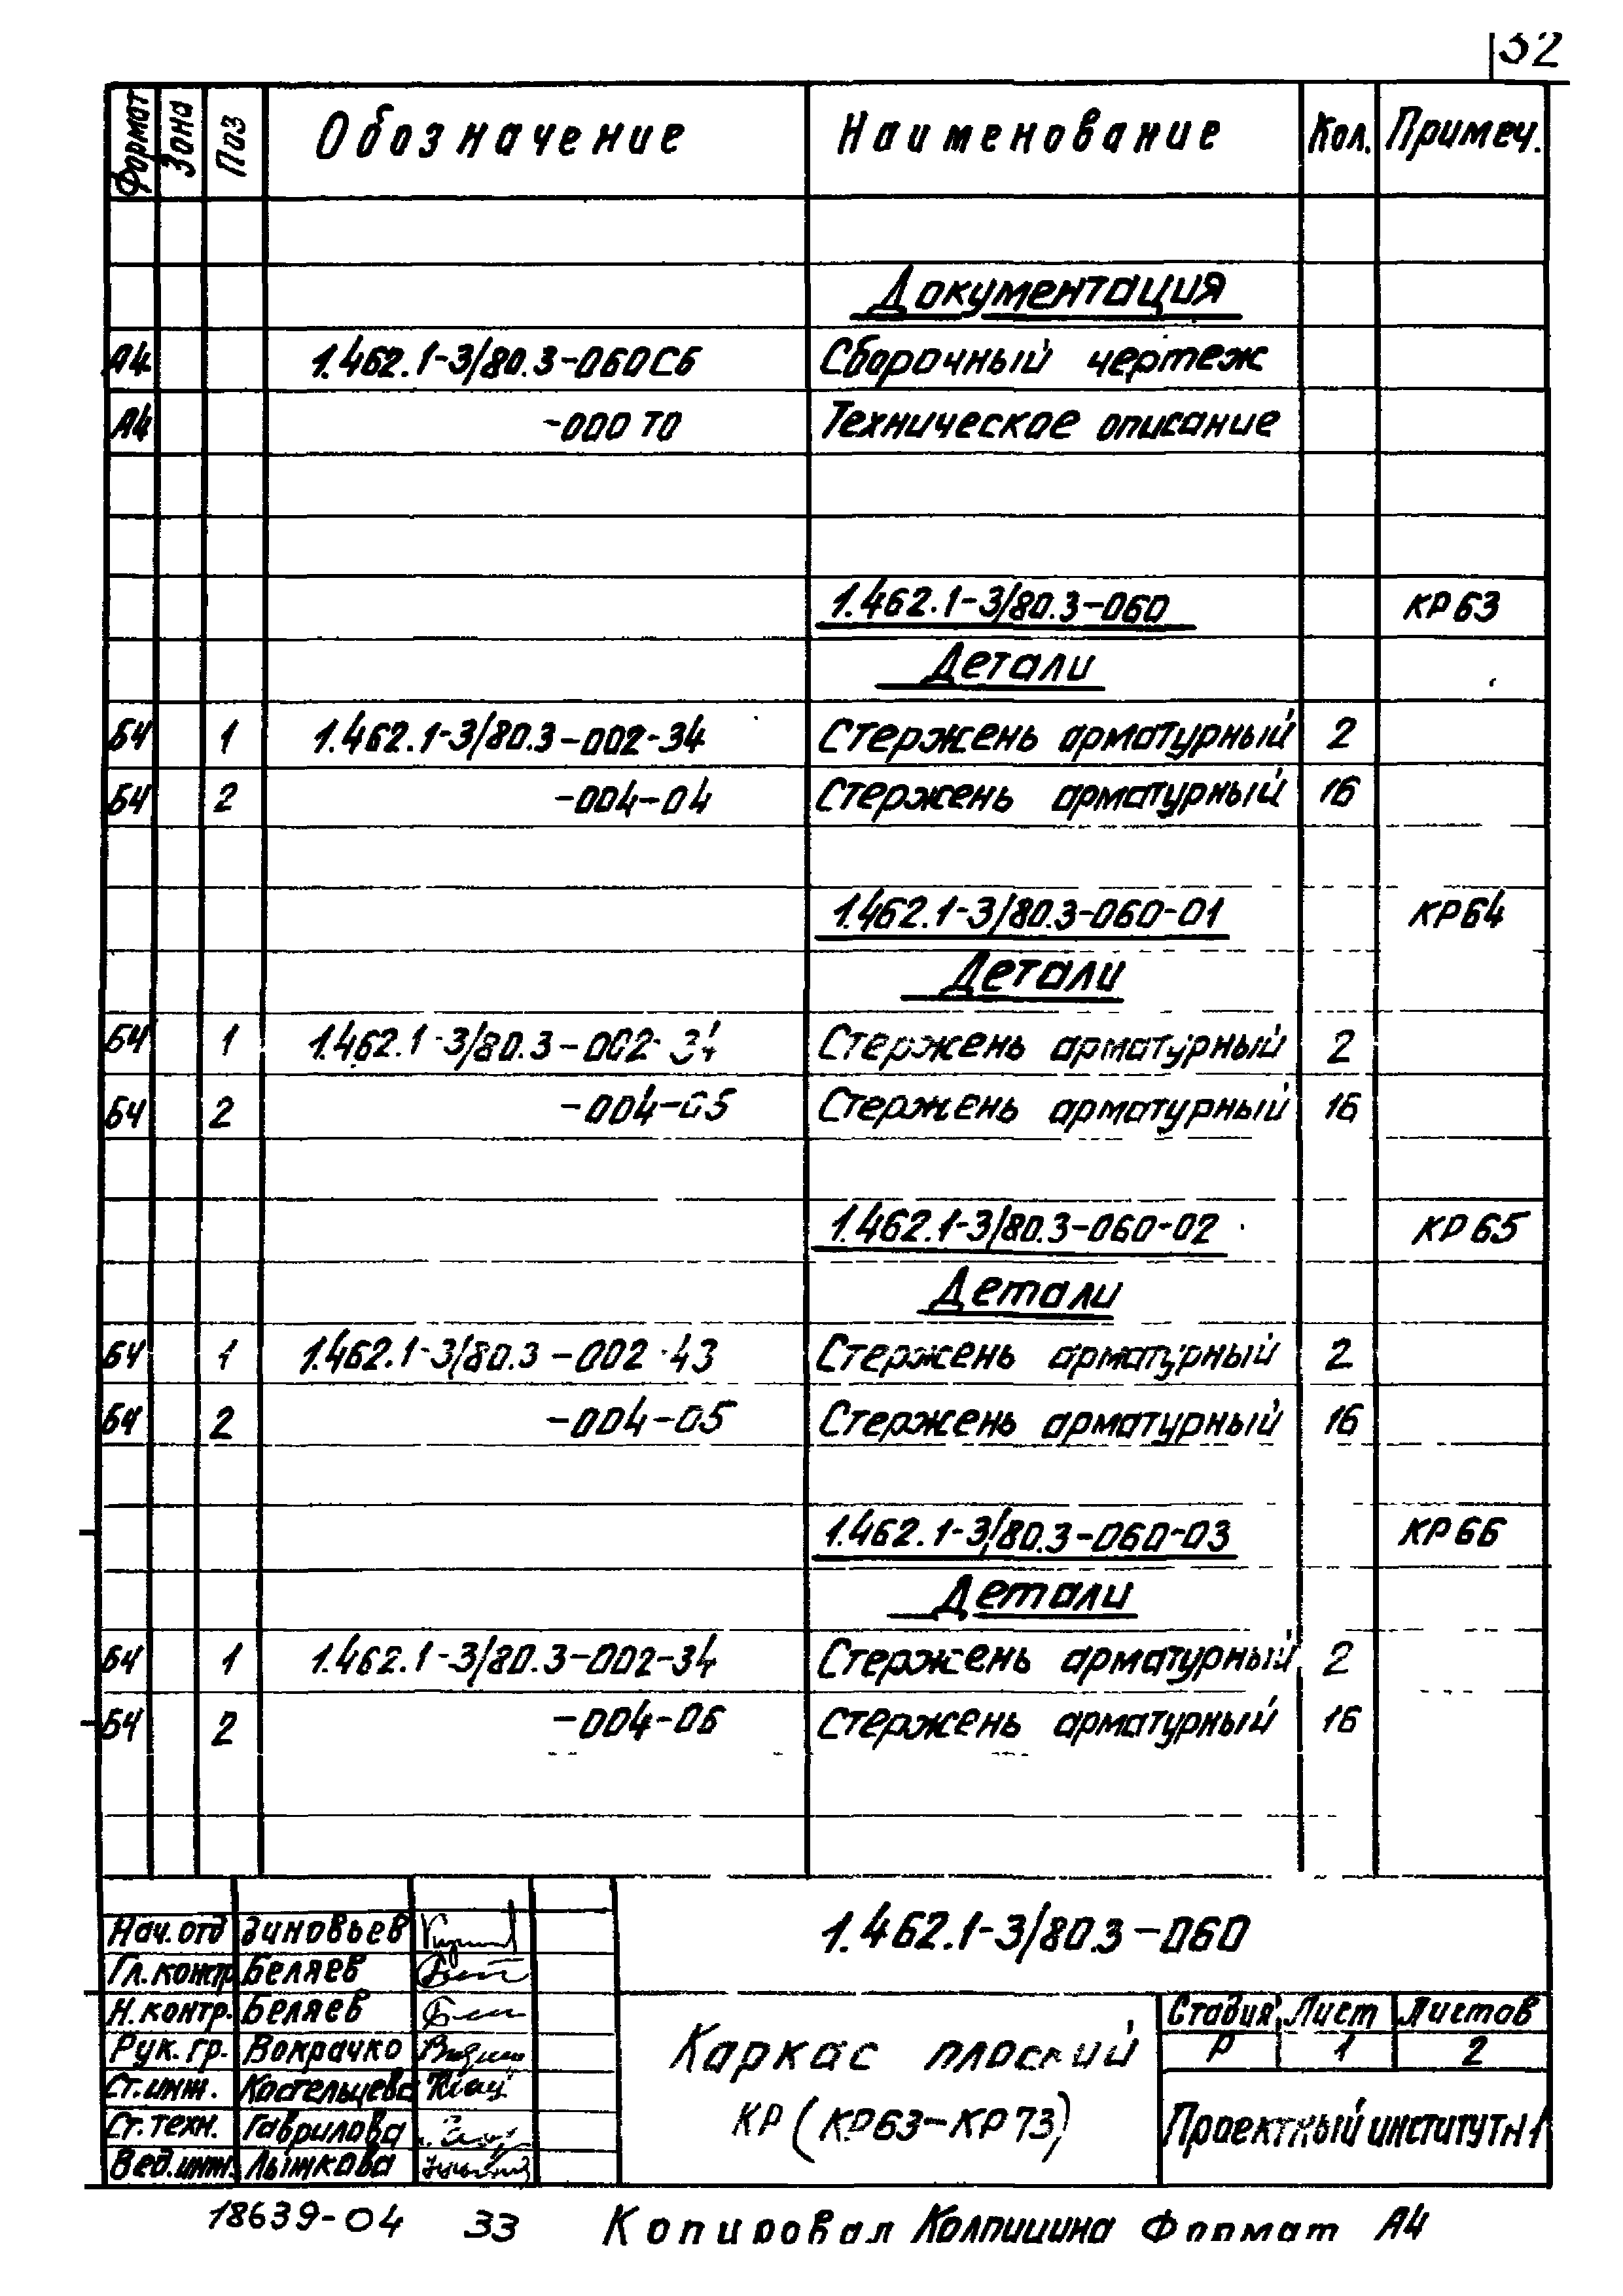 32
Формат Зона Поз Обозначение Наименование Кол. Примеч.
Документация
А4 1.462.1-3/80.3-060СБ Сборочный чертеж
А4 -000 ТО Техническое описание
1.462.1-3/80.3-060 КР63
Детали
БЧ 1 1.462.1-3/80.3-002-34 Стержень арматурный 2
БЧ 2 -004-04 Стержень арматурный 16
1.462.1-3/80.3-060-01 КР64
Детали
БЧ 1 1.462.1-3/80.3-002-34 Стержень арматурный 2
БЧ 2 -004-05 Стержень арматурный 16
1.462.1-3/80.3-060-02 КР65
Детали
БЧ 1 1.462.1-3/80.3-002-43 Стержень арматурный 2
БЧ 2 -004-05 Стержень арматурный 16
1.462.1-3/80.3-060-03 КР66
Детали
БЧ 1 1.462.1-3/80.3-002-34 Стержень арматурный 2
БЧ 2 -004-06 Стержень арматурный 16
1.462.1-3/80.3-060
Нач.отд Зиновьев
Гл.контр Беляев
Н.контр. Беляев
Рук.гр. Вокрачко
Ст.инж. Костельцева
Ст.техн. Гаврилова
Вед.инж. Лыжкова
Каркас плоский
КР (КР63-КР73)
Стадия Лист Листов
Р 1 2
Проектный институт N1
18639-04 33 Копировал Колпицина Формат А4